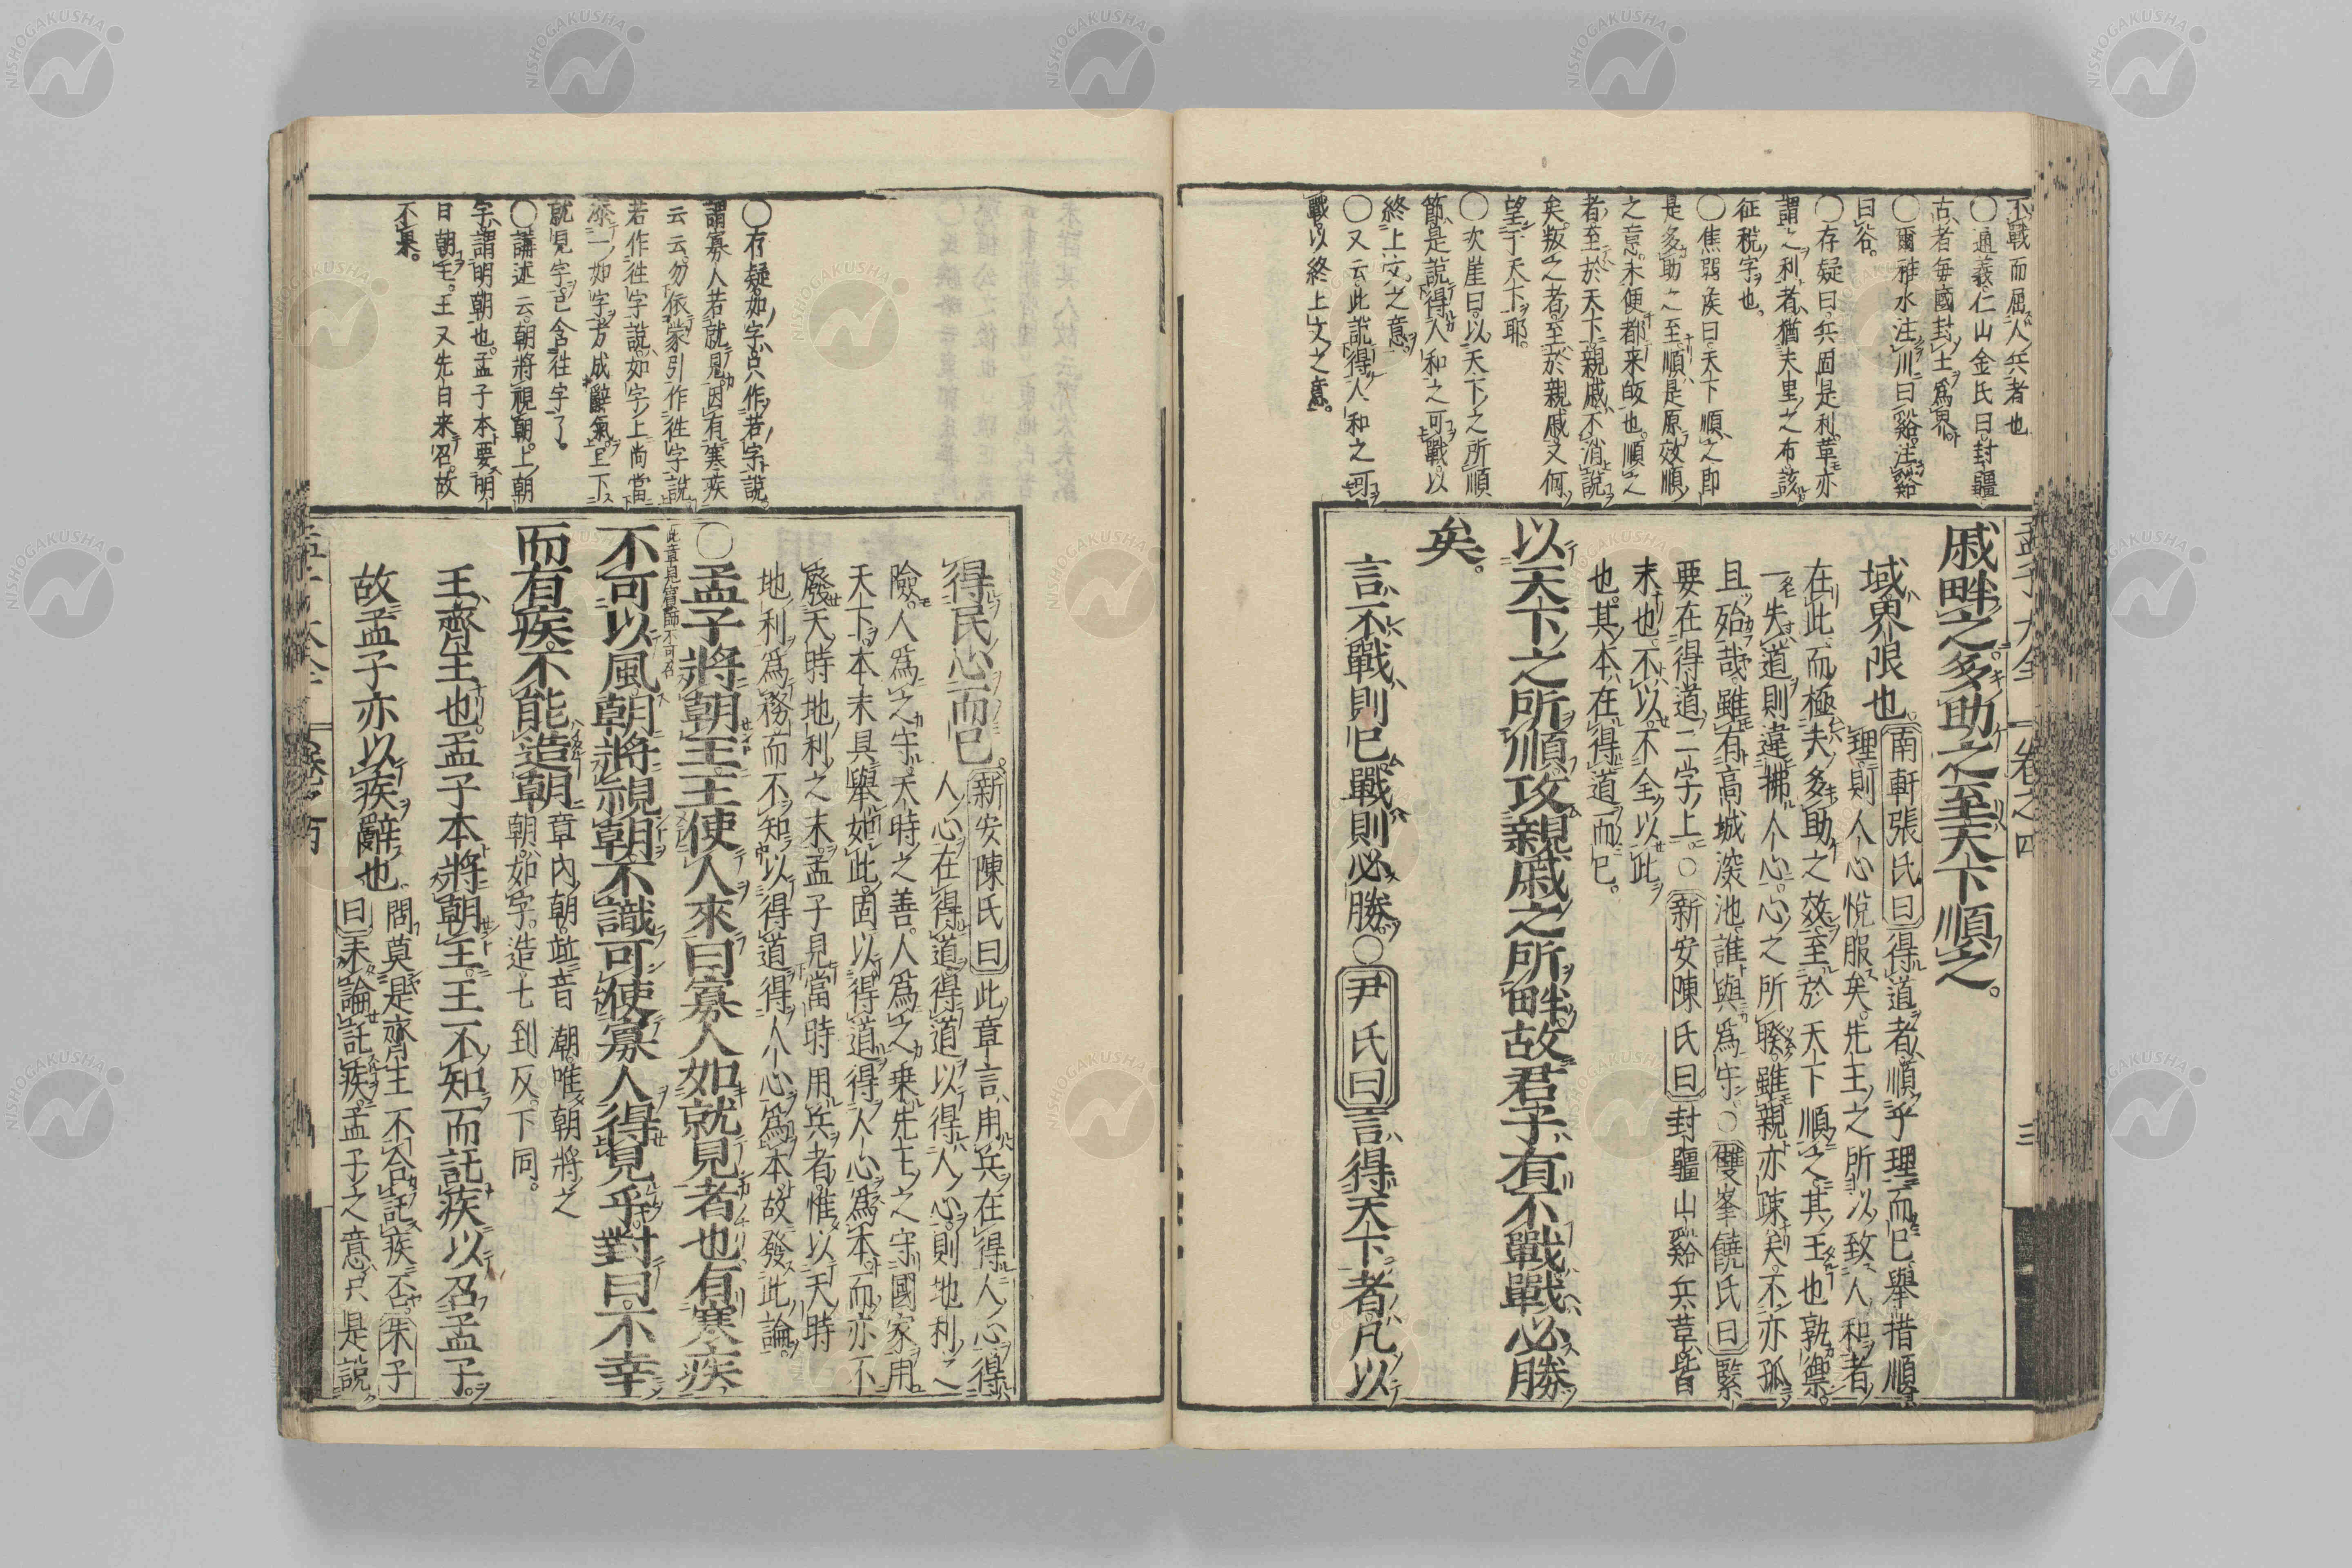 不戰而屈人兵者也
○通義仁山金氏曰封疆
古者每國封土爲界
○爾雅水注川曰谿注谿
曰谷。
○存疑曰兵固是利革亦
謂之利者猶夫里之布該
征稅字也。
○焦弱侯曰天下順之即
是多助之至順是原效順
之意未便都来皈也。順之
者至於天下親戚不消説
矣。叛之者至於親戚又何
望于天下耶。
○次崖曰。以天下之所順
節是說得人和之可戰。以
終上文之意。
○又云。此說得人和之可
戰。以終上文之意。
孟子大全 卷之四 三
戚畔之多助之至天下順之。
域界限也。南軒張氏曰得道者順乎理而已舉措順
理則人心悅服矣。先王之所以致人和者
在此而極夫多助之效至於天下順之其王也孰禦。
一失道則違拂人心。心之所暌。雖親亦疎矣。不亦孤
且殆哉。雖有高城深池。誰與爲守。○雙峯饒氏曰緊
要在得道二字上。○新安陳氏曰封疆山谿兵革皆
末也。不以不全以此
也。其本在得道而已。
以天下之所順攻親戚之所畔故君子有不戰戰必勝
矣。
言不戰則已戰則必勝。○尹氏曰言得天下者凡以
得民心而已。新安陳氏曰此章言用兵在得人心得
人心在得道得道以得人心。則地利之
險。人爲之守。天時之善。人爲之乗。先王之守國家用
天下。本末具舉如此。固以得道得人心爲本。而亦不
廢天時地利之末。孟子見當時用兵者。惟以天時
地利爲務而不知以得道得人心爲本。故發此論。
此章見賓師不可召
○孟子將朝王王使人來曰寡人如就見者也有寒疾
不可以風朝將視朝不識可使寡人得見乎對曰不幸
而有疾不能造朝章內朝。竝音潮。唯朝將之
朝。如字。造七到反。下同。
王齊王也。孟子本將朝王。王不知而託疾以召孟子。
故孟子亦以疾辭也。問莫是齊王不合託疾否。朱子
曰未論託疾。孟子之意只是說
○存疑。如字。只作若字說。
謂寡人若就見。因有寒疾
云云。勿依蒙引作徃字說
若作徃字說。如字上尚當
添一如字方成辭氣。且下
就見字。已含徃字了。
○講述云。朝將視朝。上朝
字。謂明朝也。孟子本要明
日朝王。王又先日来召。故
不果。